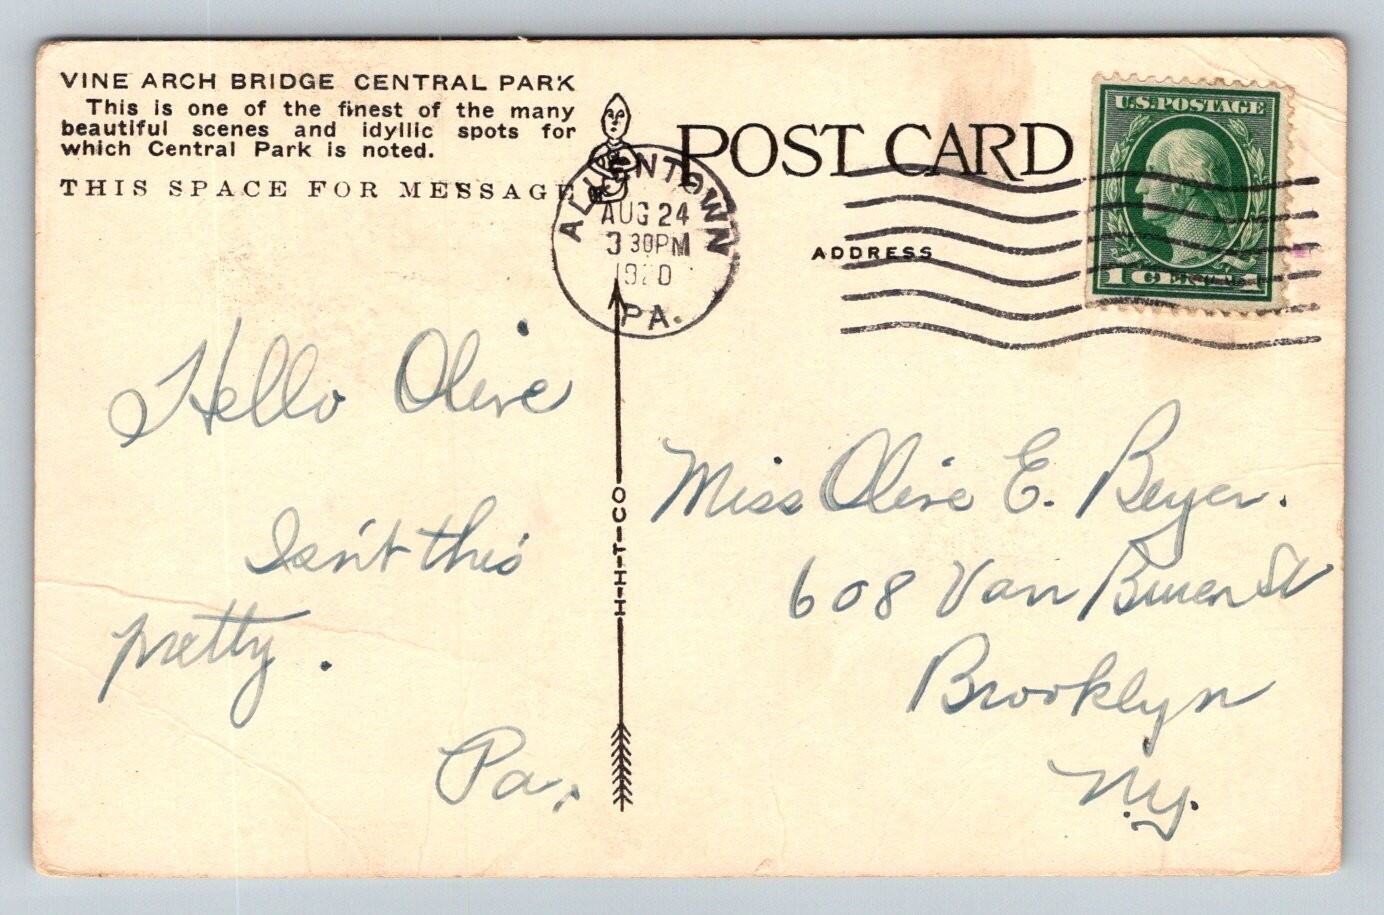 VINE ARCH BRIDGE CENTRAL PARK
This is one of the finest of the many
beautiful scenes and idyllic spots for
which Central Park is noted.
THIS SPACE FOR MESSAGE
POST CARD
ADDRESS
U.S. POSTAGE
1 CENT 1
ALLENTOWN
AUG 24
3 30PM
1920
PA.
Hello Olive
Isn't this
pretty.
Pa.
H-H-T-CO
Miss Olive E. Beyer.
608 Van Buren St
Brooklyn
N.y.